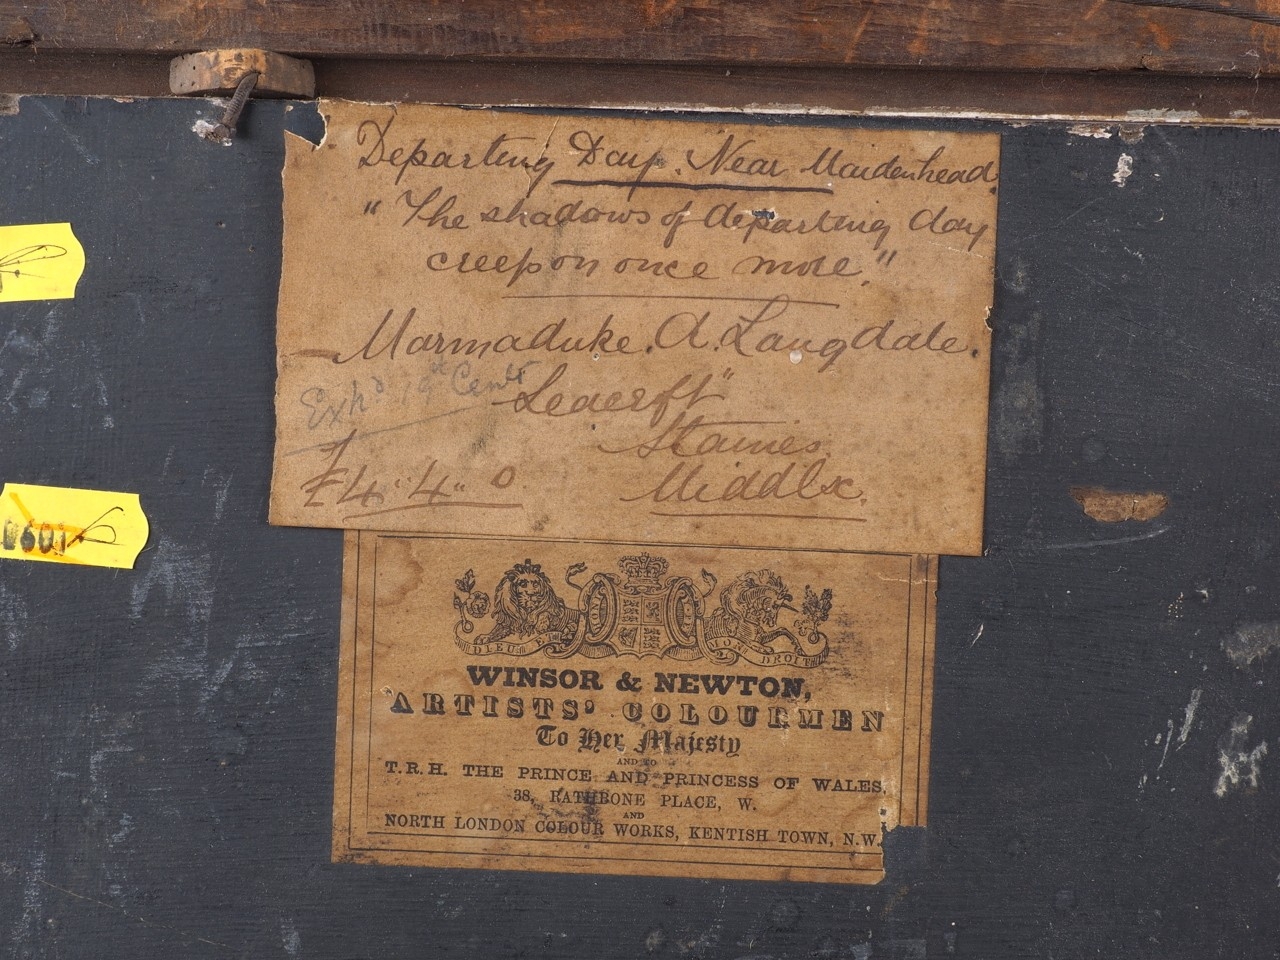 Departing Day. Near Maidenhead.
"The shadows of departing day
creep on once more."
Marmaduke. A. Langdale.
Exhd 19th Cent
"Leacroft"
Staines.
Middlx.
£4"4"0
DIEU ET MON DROIT
WINSOR & NEWTON,
ARTISTS' COLOURMEN
To Her Majesty
AND TO
T.R.H. THE PRINCE AND PRINCESS OF WALES,
38, RATHBONE PLACE, W.
AND
NORTH LONDON COLOUR WORKS, KENTISH TOWN, N.W.